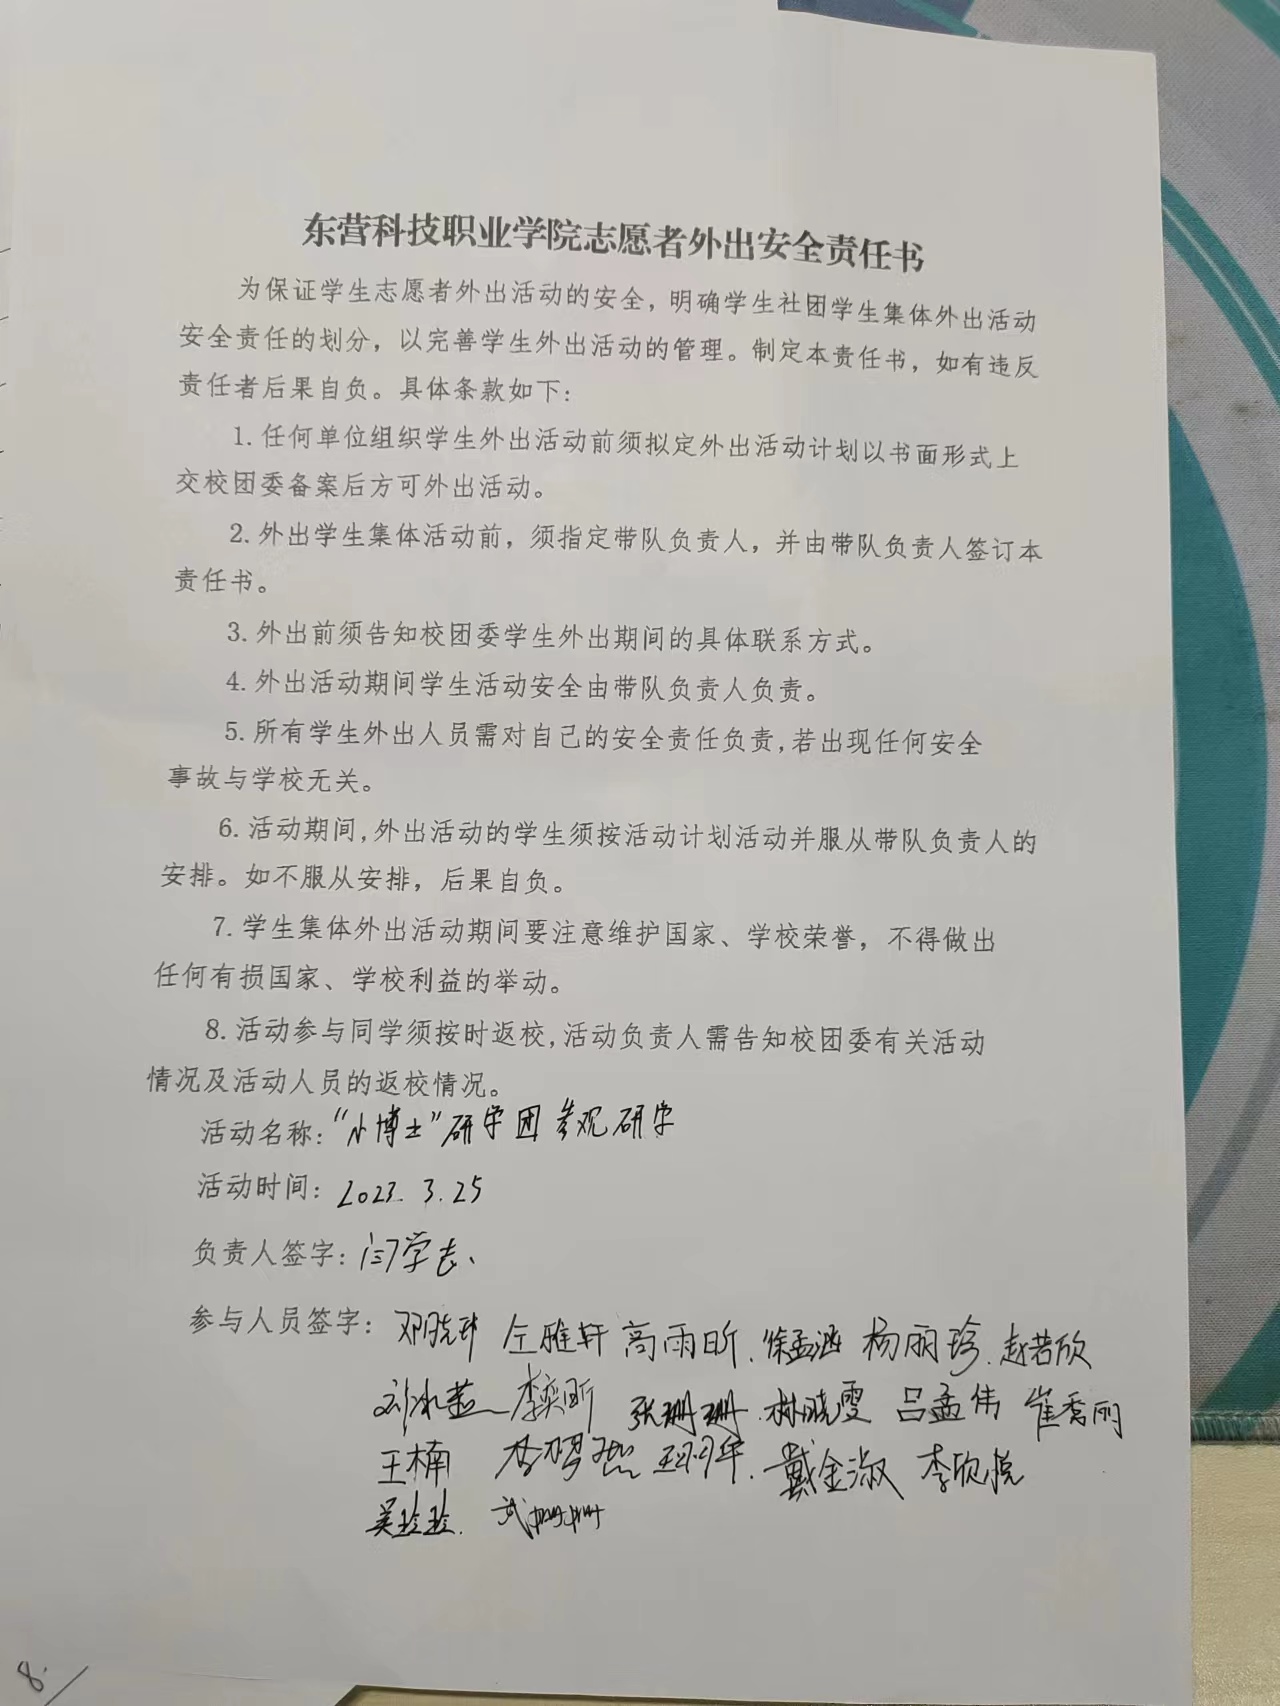 东营科技职业学院志愿者外出安全责任书
为保证学生志愿者外出活动的安全，明确学生社团学生集体外出活动
安全责任的划分，以完善学生外出活动的管理。制定本责任书，如有违反
责任者后果自负。具体条款如下：
1.任何单位组织学生外出活动前须拟定外出活动计划以书面形式上
交校团委备案后方可外出活动。
2.外出学生集体活动前，须指定带队负责人，并由带队负责人签订本
责任书。
3.外出前须告知校团委学生外出期间的具体联系方式。
4.外出活动期间学生活动安全由带队负责人负责。
5.所有学生外出人员需对自己的安全责任负责,若出现任何安全
事故与学校无关。
6.活动期间,外出活动的学生须按活动计划活动并服从带队负责人的
安排。如不服从安排，后果自负。
7.学生集体外出活动期间要注意维护国家、学校荣誉，不得做出
任何有损国家、学校利益的举动。
8.活动参与同学须按时返校,活动负责人需告知校团委有关活动
情况及活动人员的返校情况。
活动名称：“小博士”研学团参观研学
活动时间：2023.3.25
负责人签字：闫学志
参与人员签字：邓晓玮 高雨昕 徐孟涵 杨丽珍 赵若欣
李奕昕 张珊珊 林晓雯 吕孟伟 崔秀丽
王楠 戴金淑 李欣悦
吴玲玲 武珊珊
8.